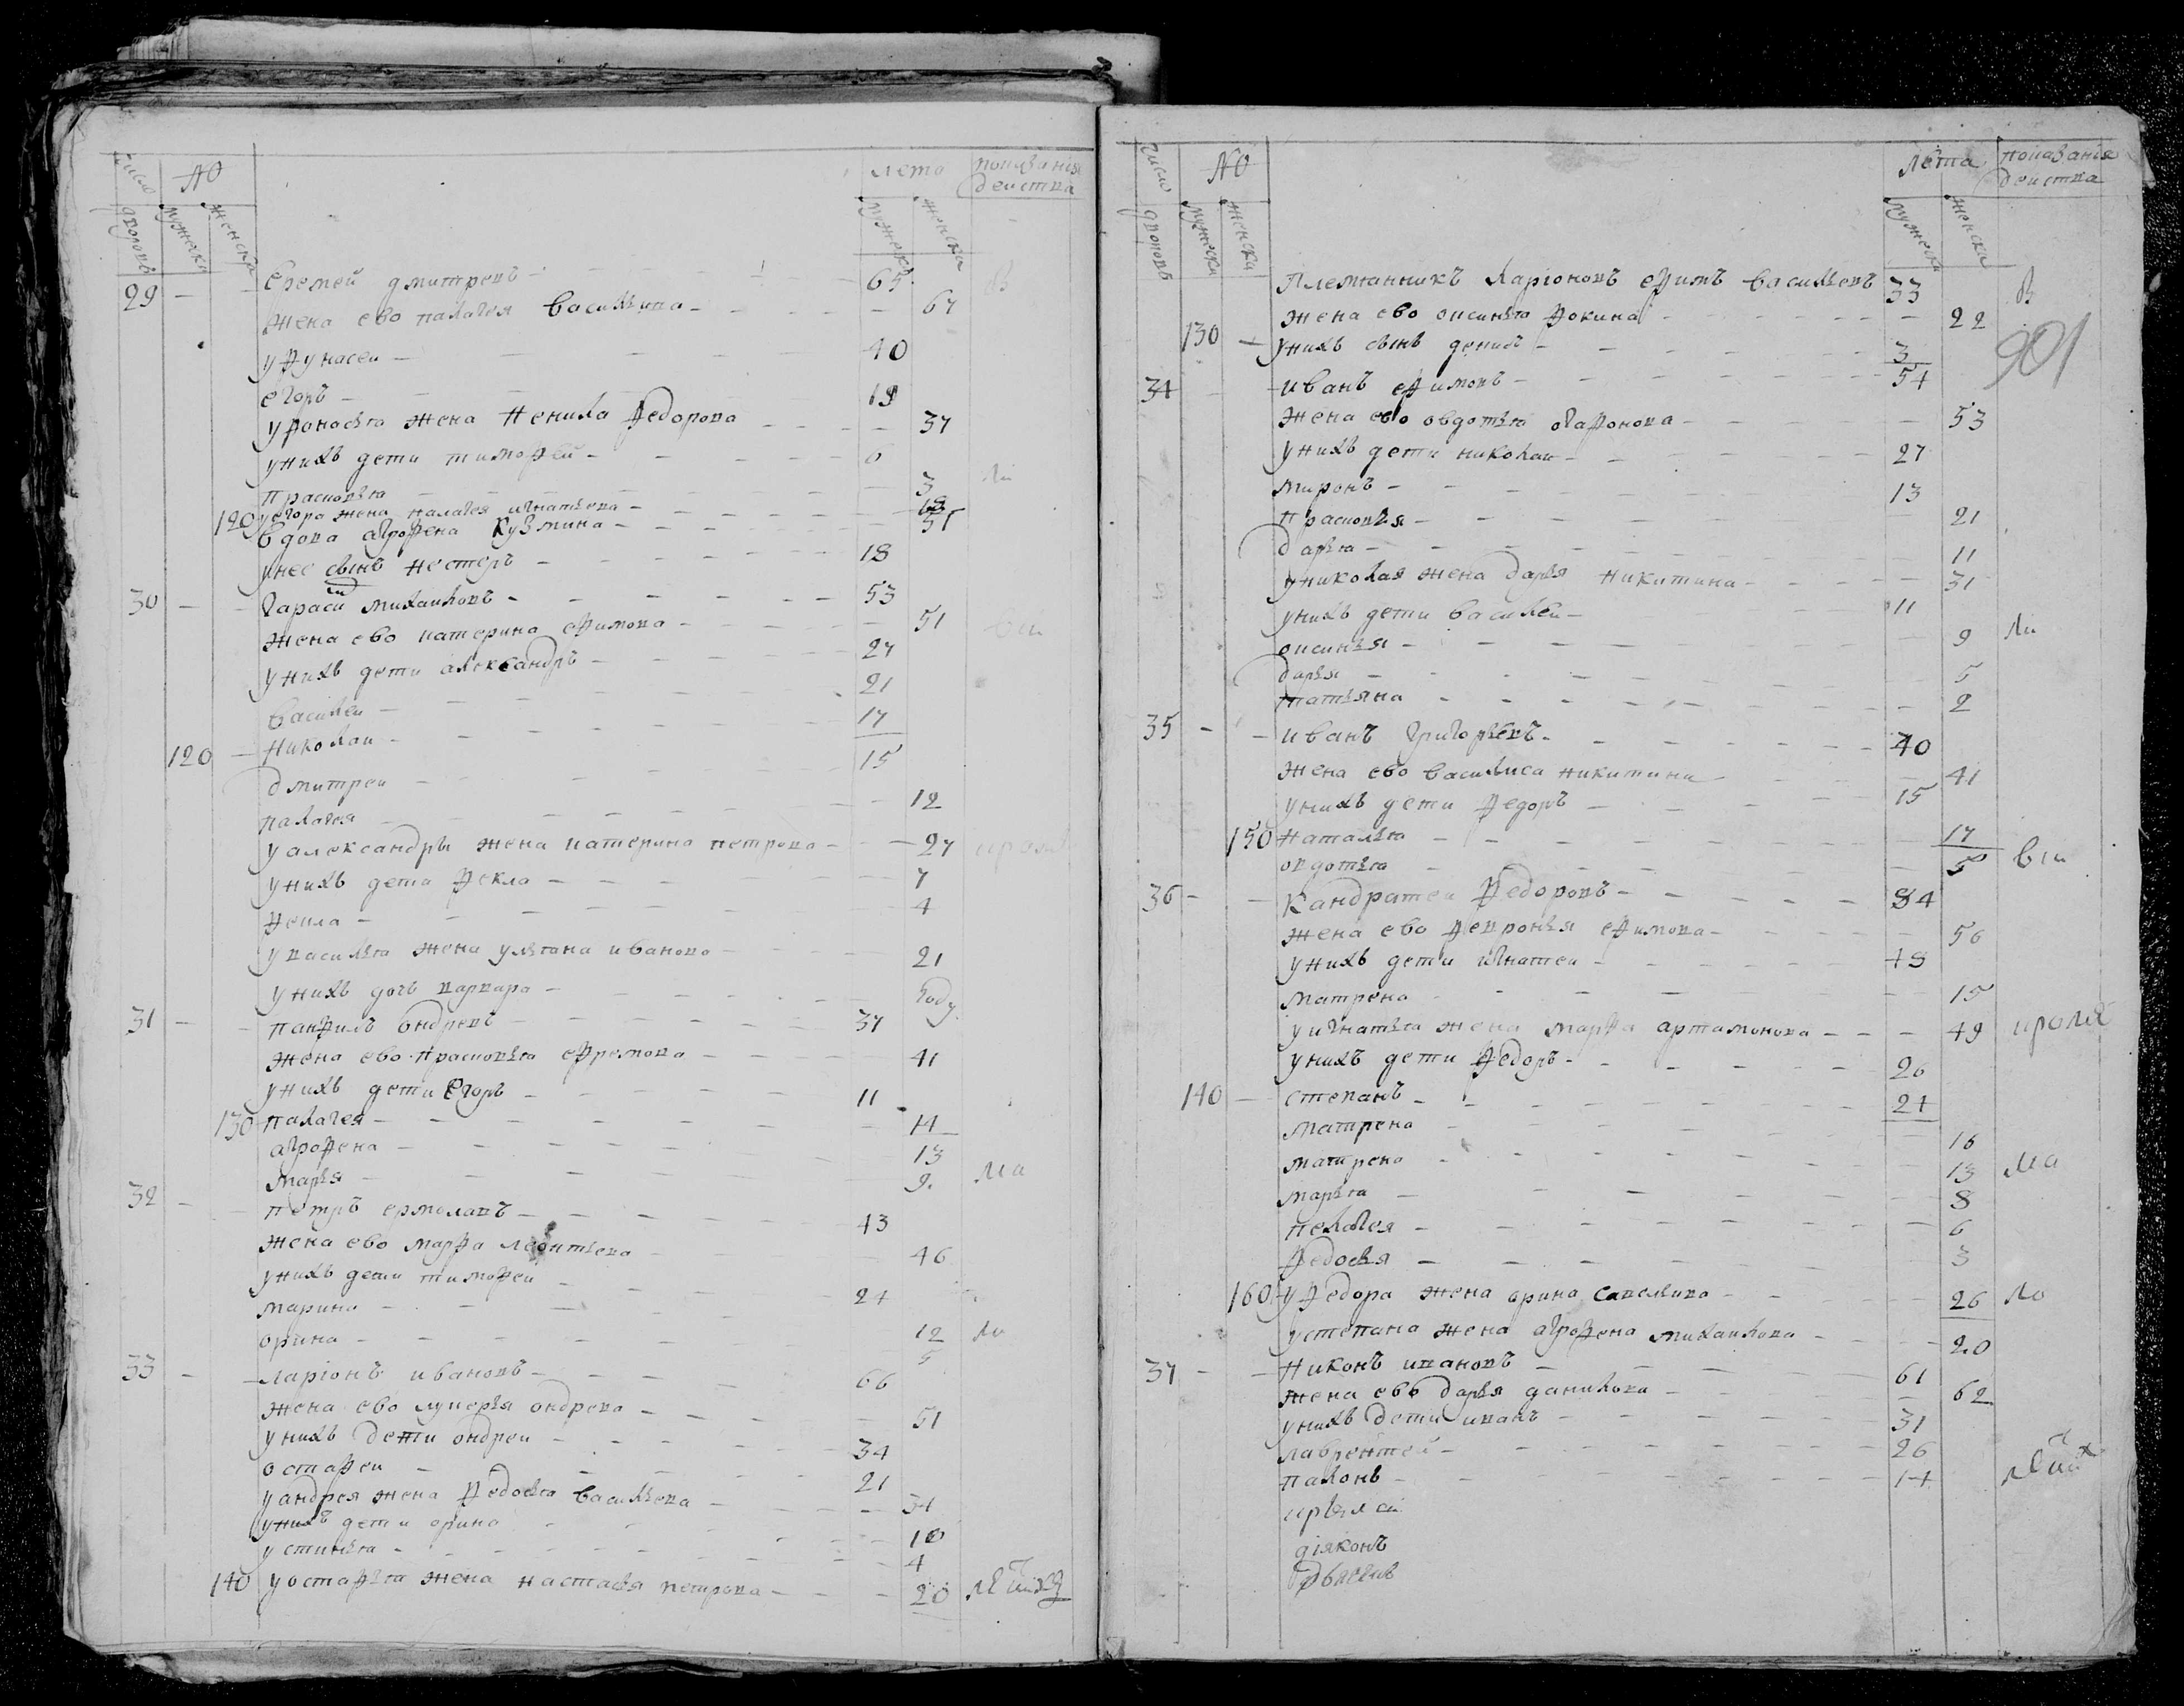 число дворовъ
NO
мужеска
женска
лета
мужеска
женска
показания
действа
29 Еремей дмитревъ 65
жена ево палагея василъева 67
у афонасеи 40
егоръ 18
у афонасья жена ненила федорова 37
у нихъ дети тимофей 6
прасковья 3
120 у егора жена палагея игнатьева 18
вдова агрофена кузмина 51
у нее сынъ нестеръ 18
30 Гарасим михаиловъ 53
жена ево катерина ефимова 51
у нихъ дети александръ 27
василеи 21
120 николаи 17
дмитреи 15
палагея 12
у александры жена катерина петрова 27
у нихъ дети фекла 7
фекла 4
у василья жена ульяна иванова 21
у нихъ дочь варвара году
31 панфилъ ондревъ 37
жена ево прасковья ефремова 41
у нихъ дети егоръ 11
130 палагея 14
агрофена 13
марья 9
32 петръ ермолавъ 43
жена ево марфа леонтьева 46
у нихъ дети тимофеи 24
марина 12
орина 5
33 ларіонъ ивановъ 66
жена ево лукерья ондрева 51
у нихъ дети ондреи 34
остафеи 21
у андрея жена федосья васильева 34
у нихъ дети орина 10
устинья 4
140 у остафья жена настасья петрова 20
число дворовъ
NO
мужеска
женска
лета
мужеска
женска
показания
действа
901
Племянникъ ларіоновъ ефимъ василъевъ 33
жена ево оксинья фокина 22
130 у нихъ сынъ денисъ 3
34 иванъ ефимовъ 54
жена ево овдотья агафонова 53
у нихъ дети николаи 27
миронъ 13
прасковья 21
дарья 11
у николая жена дарья никитина 31
у нихъ дети василеи 11
оксинья 9
дарья 5
татьяна 2
35 иванъ григорьевъ 40
жена ево василиса никитина 41
у нихъ дети федоръ 15
150 наталья 17
овдотья 5
36 Кандратеи федоровъ 84
жена ево февронья ефимова 56
у нихъ дети игнатеи 48
матрена 15
у игнатья жена марфа артамонова 49
у нихъ дети федоръ 26
140 степанъ 21
матрена 16
матрена 13
марья 8
пелагея 6
федосья 3
160 у федора жена орина савельева 26
у степана жена агрофена михаилова 20
37 Никонъ ивановъ 61
жена ево дарья данилова 62
у нихъ дети иванъ 31
лаврентеи 26
палонъ 14
діяконъ